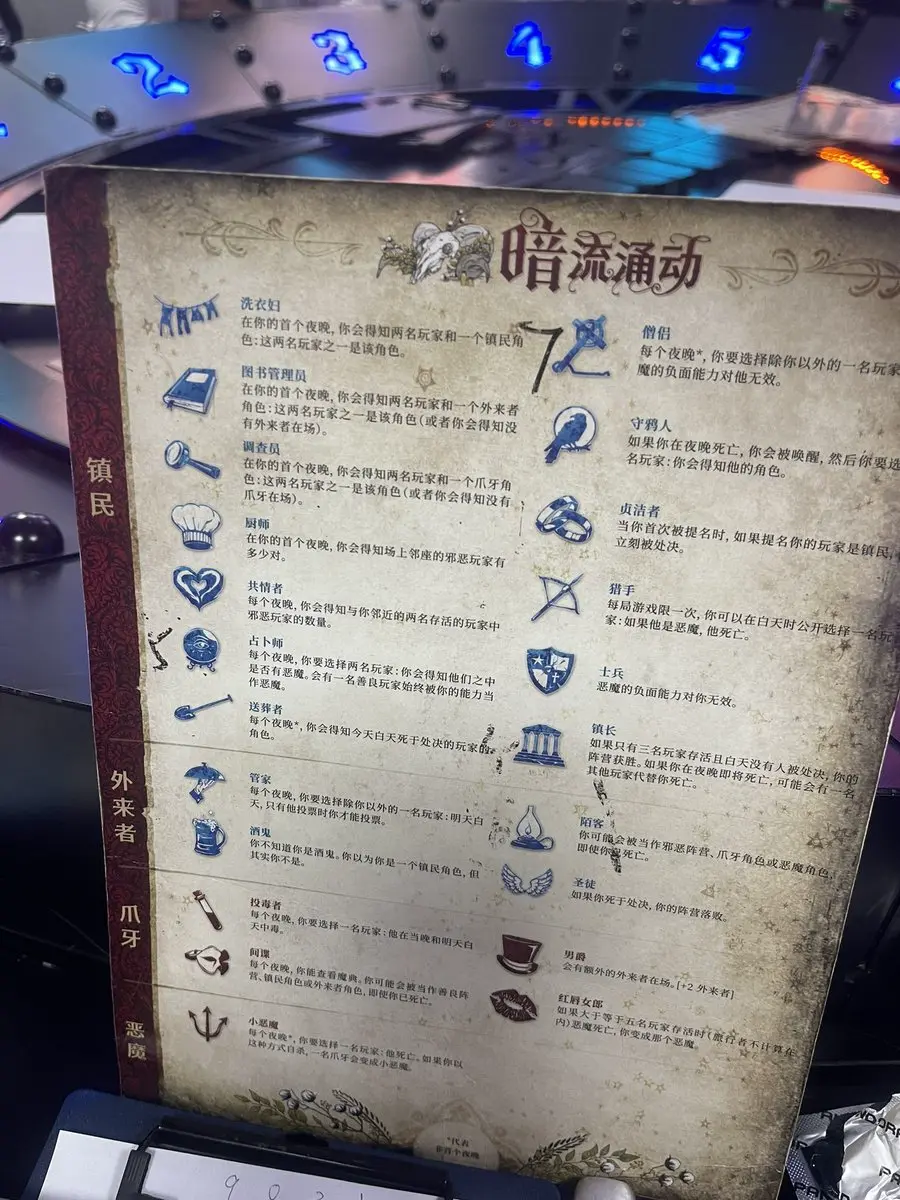 2
3
4
5
暗流涌动
镇民
洗衣妇
在你的首个夜晚,你会得知两名玩家和一个镇民角
色:这两名玩家之一是该角色。
图书管理员
在你的首个夜晚,你会得知两名玩家和一个外来者
角色:这两名玩家之一是该角色(或者你会得知没
有外来者在场)。
调查员
在你的首个夜晚,你会得知两名玩家和一个爪牙角
色:这两名玩家之一是该角色(或者你会得知没有
爪牙在场)。
厨师
在你的首个夜晚,你会得知场上邻座的邪恶玩家有
多少对。
共情者
每个夜晚,你会得知与你邻近的两名存活的玩家中
邪恶玩家的数量。
占卜师
每个夜晚,你要选择两名玩家:你会得知他们之中
是否有恶魔。会有一名善良玩家始终被你的能力当
作恶魔。
送葬者
每个夜晚*,你会得知今天白天死于处决的玩家的
角色。
僧侣
每个夜晚*,你要选择除你以外的一名玩家
魔的负面能力对他无效。
守鸦人
如果你在夜晚死亡,你会被唤醒,然后你要选
名玩家:你会得知他的角色。
贞洁者
当你首次被提名时,如果提名你的玩家是镇民,
立刻被处决。
猎手
每局游戏限一次,你可以在白天时公开选择一名玩
家:如果他是恶魔,他死亡。
士兵
恶魔的负面能力对你无效。
镇长
如果只有三名玩家存活且白天没有人被处决,你的
阵营获胜。如果你在夜晚即将死亡,可能会有一名
其他玩家代替你死亡。
外来者
管家
每个夜晚,你要选择除你以外的一名玩家:明天白
天,只有他投票时你才能投票。
酒鬼
你不知道你是酒鬼。你以为你是一个镇民角色,但
其实你不是。
陌客
你可能会被当作邪恶阵营、爪牙角色或恶魔角色,
即使你已死亡。
圣徒
如果你死于处决,你的阵营落败。
爪牙
投毒者
每个夜晚,你要选择一名玩家:他在当晚和明天白
天中毒。
间谍
每个夜晚,你能查看魔典。你可能会被当作善良阵
营、镇民角色或外来者角色,即使你已死亡。
男爵
会有额外的外来者在场。[+2 外来者]
红唇女郎
如果大于等于五名玩家存活时(旅行者不计算在
内)恶魔死亡,你变成那个恶魔。
恶魔
小恶魔
每个夜晚*,你要选择一名玩家:他死亡。如果你以
这种方式自杀,一名爪牙会变成小恶魔。
*代表
非首个夜晚